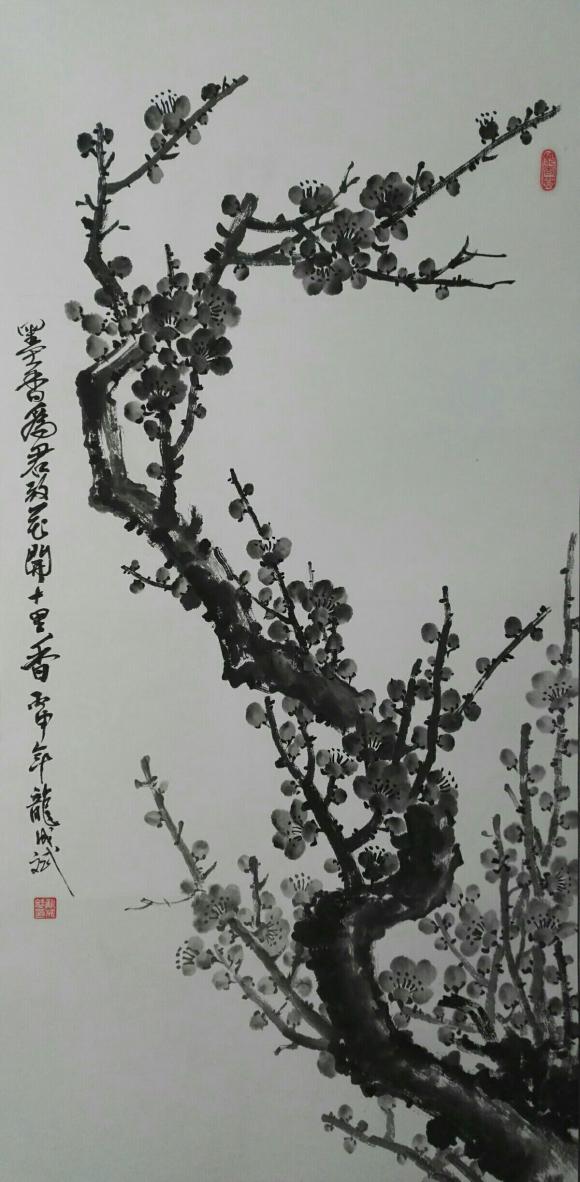 墨香為君放花開十里香丙申年龍成斌